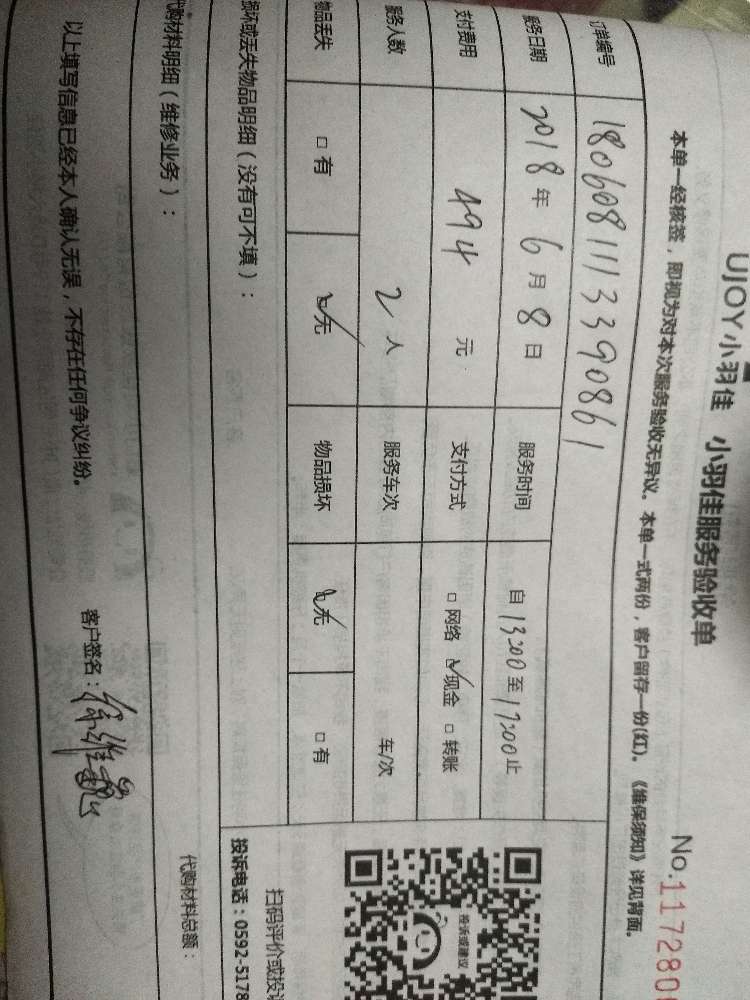 UJOY小羽佳 小羽佳服务验收单
No.117280
本单一经核签，即视为对本次服务验收无异议。本单一式两份，客户留存一份(红)。《维保须知》详见背面。
订单编号 1806081113390861
服务日期 2018年6月8日 服务时间 自13:00至17:00止
支付费用 494元 支付方式 □网络 ☑现金 □转账
服务人数 2人 服务车次 车/次
物品丢失 □有 ☑无 物品损坏 ☑无 □有
损坏或丢失物品明细（没有可不填）：
代购材料明细（维修业务）：
代购材料总额：
以上填写信息已经本人确认无误，不存在任何争议纠纷。
客户签名：
投诉或建议
扫码评价或投
投诉电话：0592-5178